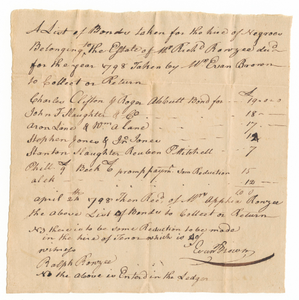 A List of Bonds taken for the hire of Negroes
Belonging to the Estate of Mr Richd Rowzee decd
for the year 1798 Taken by Mr Evan Brown
to Collect or Return
Charles Clifton & Roger Abbutt Bond for
John J Slaughter & Co 18
Aron Lane & Wm A Lane 17
Stephen Jones & Jones 12
Stanton Slaughter Reuben P Mitchell 7
15
12
april 24th 1798 Then Recd of Mrs Apphia Rowzee
the above List of Bonds to Collect or Return
NB there is to be some Reduction to be made
in the hire of
Witness Evan Brown
Ralph Rowzee
NB the above is Enterd in the Ledger